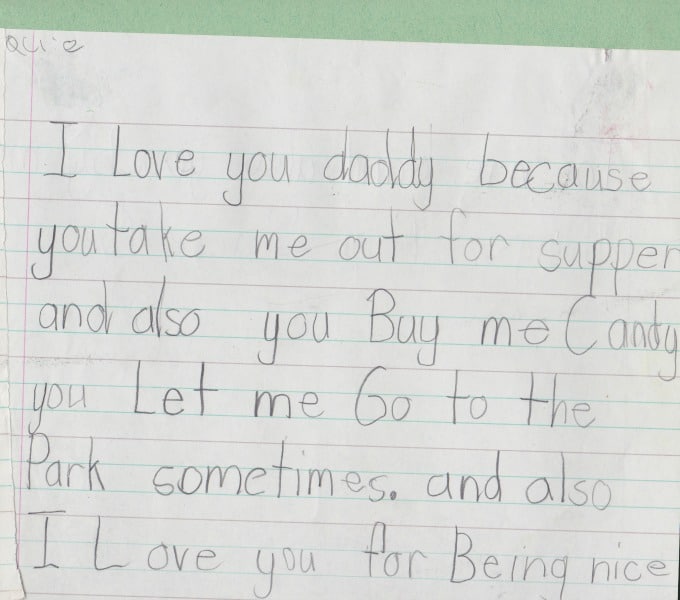 I Love you daddy because
you take me out for supper
and also you Buy me Candy
you Let me Go to the
Park sometimes. and also
I Love you for Being nice